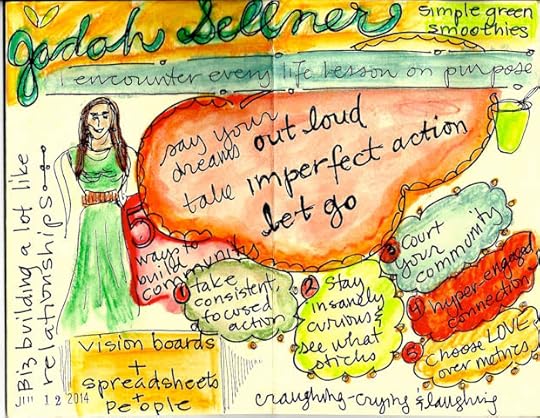 Jadah Sellner
simple green
smoothies
I encounter every life lesson on purpose
say your
dreams out loud
take imperfect action
let go
Biz building a lot like
relationships
5
ways to
build
community
1 take
consistent,
focused
action
2 Stay
insanely
curious &
see what
sticks
3 Court
your
community
4 hyper-engaged
connection
5 choose LOVE
over metrics
vision boards
+
spreadsheets
+
people
JUL 12 2014
craughing-crying & laughing